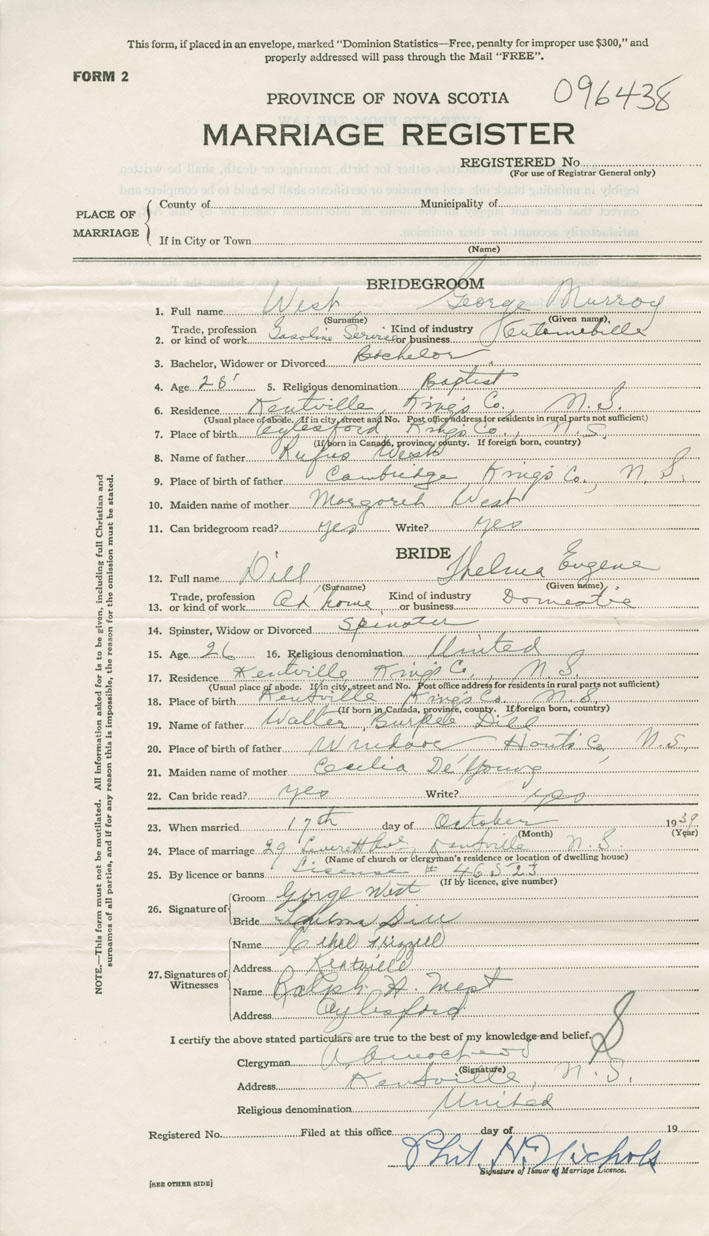 This form, if placed in an envelope, marked "Dominion Statistics—Free, penalty for improper use $300," and
properly addressed will pass through the Mail "FREE".
FORM 2
096438
PROVINCE OF NOVA SCOTIA
MARRIAGE REGISTER
REGISTERED No.
(For use of Registrar General only)
PLACE OF MARRIAGE
County of Municipality of
If in City or Town
(Name)
BRIDEGROOM
1. Full name West George Murray
(Surname) (Given name)
2. Trade, profession or kind of work Gasoline Service Kind of industry or business Automobille
3. Bachelor, Widower or Divorced Bachelor
4. Age 26 5. Religious denomination Baptist
6. Residence Kentville Kings Co., N.S.
(Usual place of abode. If in city, street and No. Post office address for residents in rural parts not sufficient)
7. Place of birth Aylesford Kings Co., N.S.
(If born in Canada, province, county. If foreign born, country)
8. Name of father Rufus West
9. Place of birth of father Cambridge Kings Co., N.S.
10. Maiden name of mother Margaret West
11. Can bridegroom read? yes Write? yes
BRIDE
12. Full name Dill Thelma Eugene
(Surname) (Given name)
13. Trade, profession or kind of work At home Kind of industry or business Domestic
14. Spinster, Widow or Divorced Spinster
15. Age 26 16. Religious denomination United
17. Residence Kentville Kings Co., N.S.
(Usual place of abode. If in city, street and No. Post office address for residents in rural parts not sufficient)
18. Place of birth Kentville Kings Co. N.S.
(If born in Canada, province, county. If foreign born, country)
19. Name of father Walter Burpee Dill
20. Place of birth of father Windsor Hants Co, N.S.
21. Maiden name of mother Cecilia De'Young
22. Can bride read? yes Write? yes
23. When married 17th day of October 1939
(Month) (Year)
24. Place of marriage 29 Kentville N.S.
(Name of church or clergyman's residence or location of dwelling house)
25. By licence or banns License # 46523
(If by licence, give number)
26. Signature of
Groom George West
Bride Thelma Dill
27. Signatures of Witnesses
Name Ethel Frizzell
Address Kentville
Name Ralph H. West
Address Aylesford
I certify the above stated particulars are true to the best of my knowledge and belief.
Clergyman
(Signature)
Address Kentville, N.S.
Religious denomination United
Registered No. Filed at this office day of 19
Phil. H. Nichols
Signature of Issuer of Marriage Licence.
[SEE OTHER SIDE]
NOTE.—This form must not be mutilated. All information asked for is to be given, including full Christian and
surnames of all parties, and if for any reason this is impossible, the reason for the omission must be stated.